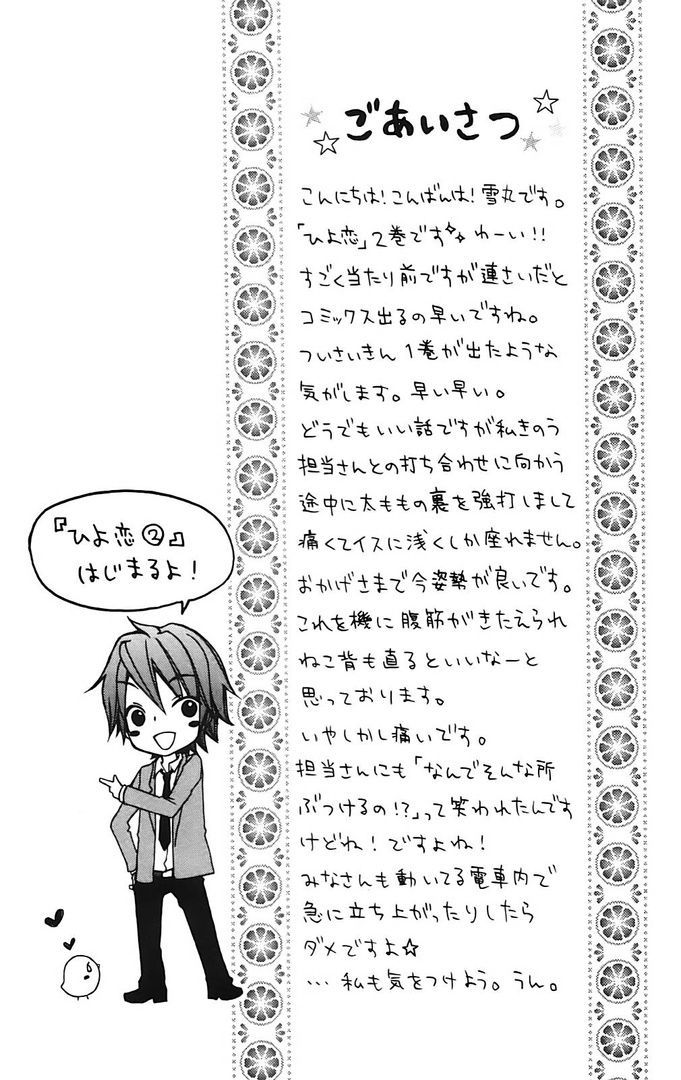 ごあいさつ
こんにちは!こんばんは!雪丸です。
「ひよ恋」2巻です✧わーい!!
すごく当たり前ですが連さいだと
コミックス出るの早いですね。
ついさいきん1巻が出たような
気がします。早い早い。
どうでもいい話ですが私きのう
担当さんとの打ち合わせに向かう
途中に太ももの裏を強打しまして
痛くてイスに浅くしか座れません。
おかげさまで今姿勢が良いです。
これを機に腹筋がきたえられ
ねこ背も直るといいなーと
思っております。
いやしかし痛いです。
担当さんにも「なんでそんな所
ぶつけるの!?」って笑われたんです
けどね!ですよね!
みなさんも動いてる電車内で
急に立ち上がったりしたら
ダメですよ☆
…私も気をつけよう。うん。
『ひよ恋②』
はじまるよ!